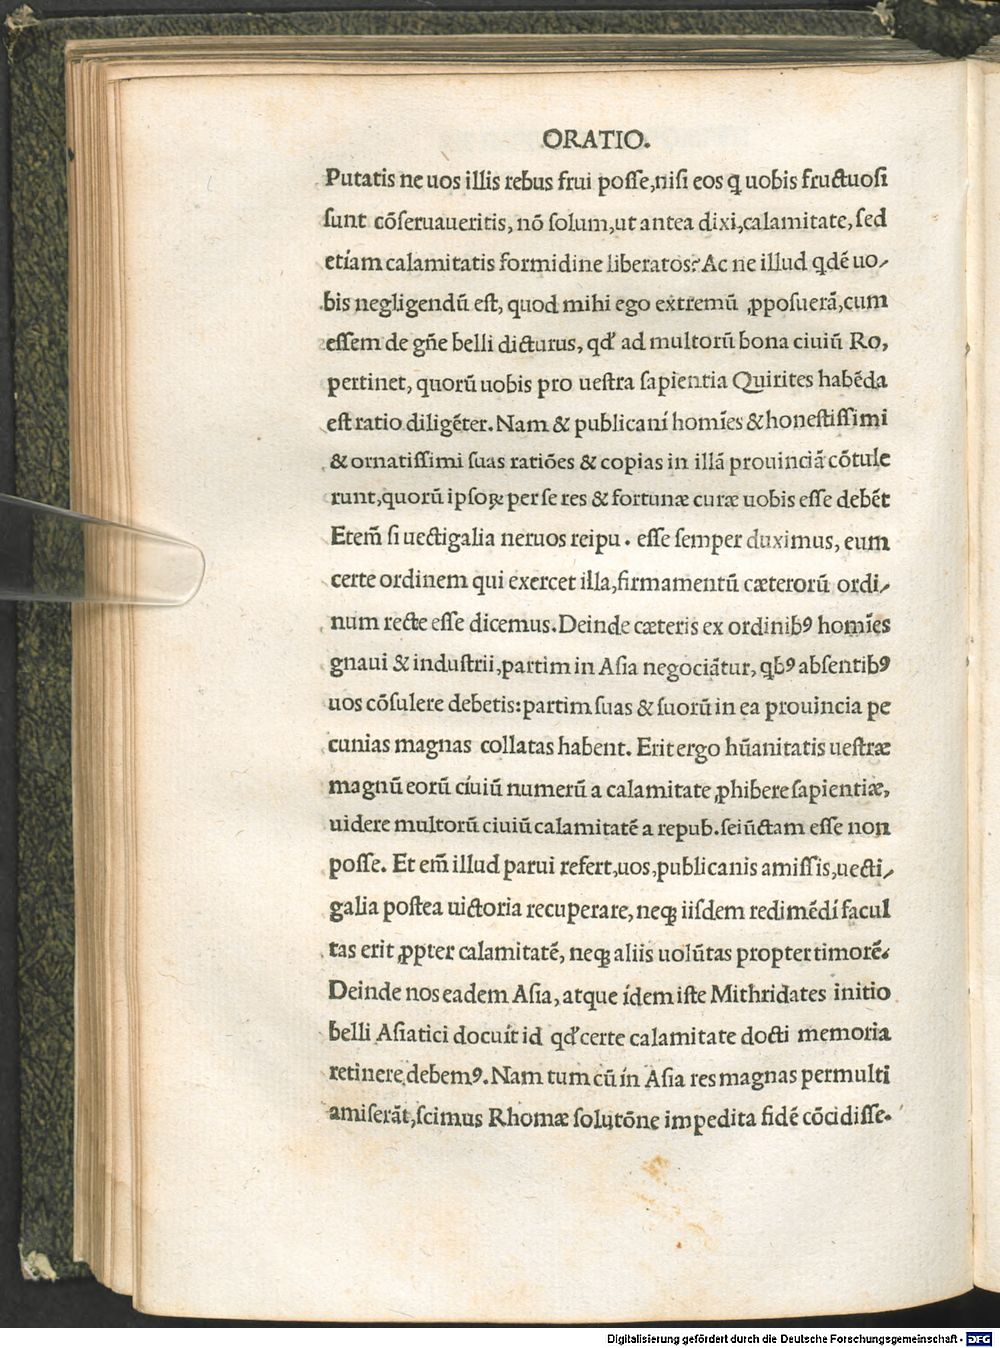 ORATIO.
Putatis ne uos illis rebus frui posse,nisi eos ꝗ uobis fructuosi
sunt cõseruaueritis, nõ solum,ut antea dixi,calamitate, sed
etíam calamitatis formidine liberatos? Ac ne illud qdẽ uo-
bis negligendũ est, quod mihi ego extremũ ꝓposuerã,cum
essem de gñe belli dicturus, qď ad multorũ bona ciuiũ Ro,
pertinet, quorũ uobis pro uestra sapientia Quirites habẽda
est ratio diligẽter. Nam & publicaní homĩes & honestissimi
& ornatissimi suas ratiões & copias in illã prouinciã cõtule
runt,quorũ ipsoꝝ per se res & fortunæ curæ uobis esse debẽt
Etem̃ si uectigalia neruos reipu. esse semper duximus, eum
certe ordinem qui exercet illa,firmamentũ cæterorũ ordi-
num recte esse dicemus. Deinde cæteris ex ordinibꝰ homĩes
gnaui & industrii,partim in Asia negociãtur, qbꝰ absentibꝰ
uos cõsulere debetis: partim suas & suorũ in ea prouincia pe
cunias magnas collatas habent. Erit ergo hũanitatis uestræ
magnũ eorũ cíuiũ numerũ a calamitate ꝓhibere sapientiæ,
uidere multorũ ciuiũ calamitatẽ a repub. seiũctam esse non
posse. Et em̃ illud parui refert,uos,publicanis amissis,uecti-
galia postea uictoria recuperare, neqꝫ iisdem redimẽdí facul
tas erit ꝓpter calamitatẽ, neqꝫ aliis uolũtas propter timorẽ.
Deinde nos eadem Asia, atque ídem iste Mithridates initio
belli Asiatici docuít id qď certe calamitate docti memoria
retinere debemꝰ. Nam tum cũ ín Asia res magnas permulti
amiserãt,scimus Rhomæ solutõne impedita fidẽ cõcidisse.
Digitalisierung gefördert durch die Deutsche Forschungsgemeinschaft - DFG